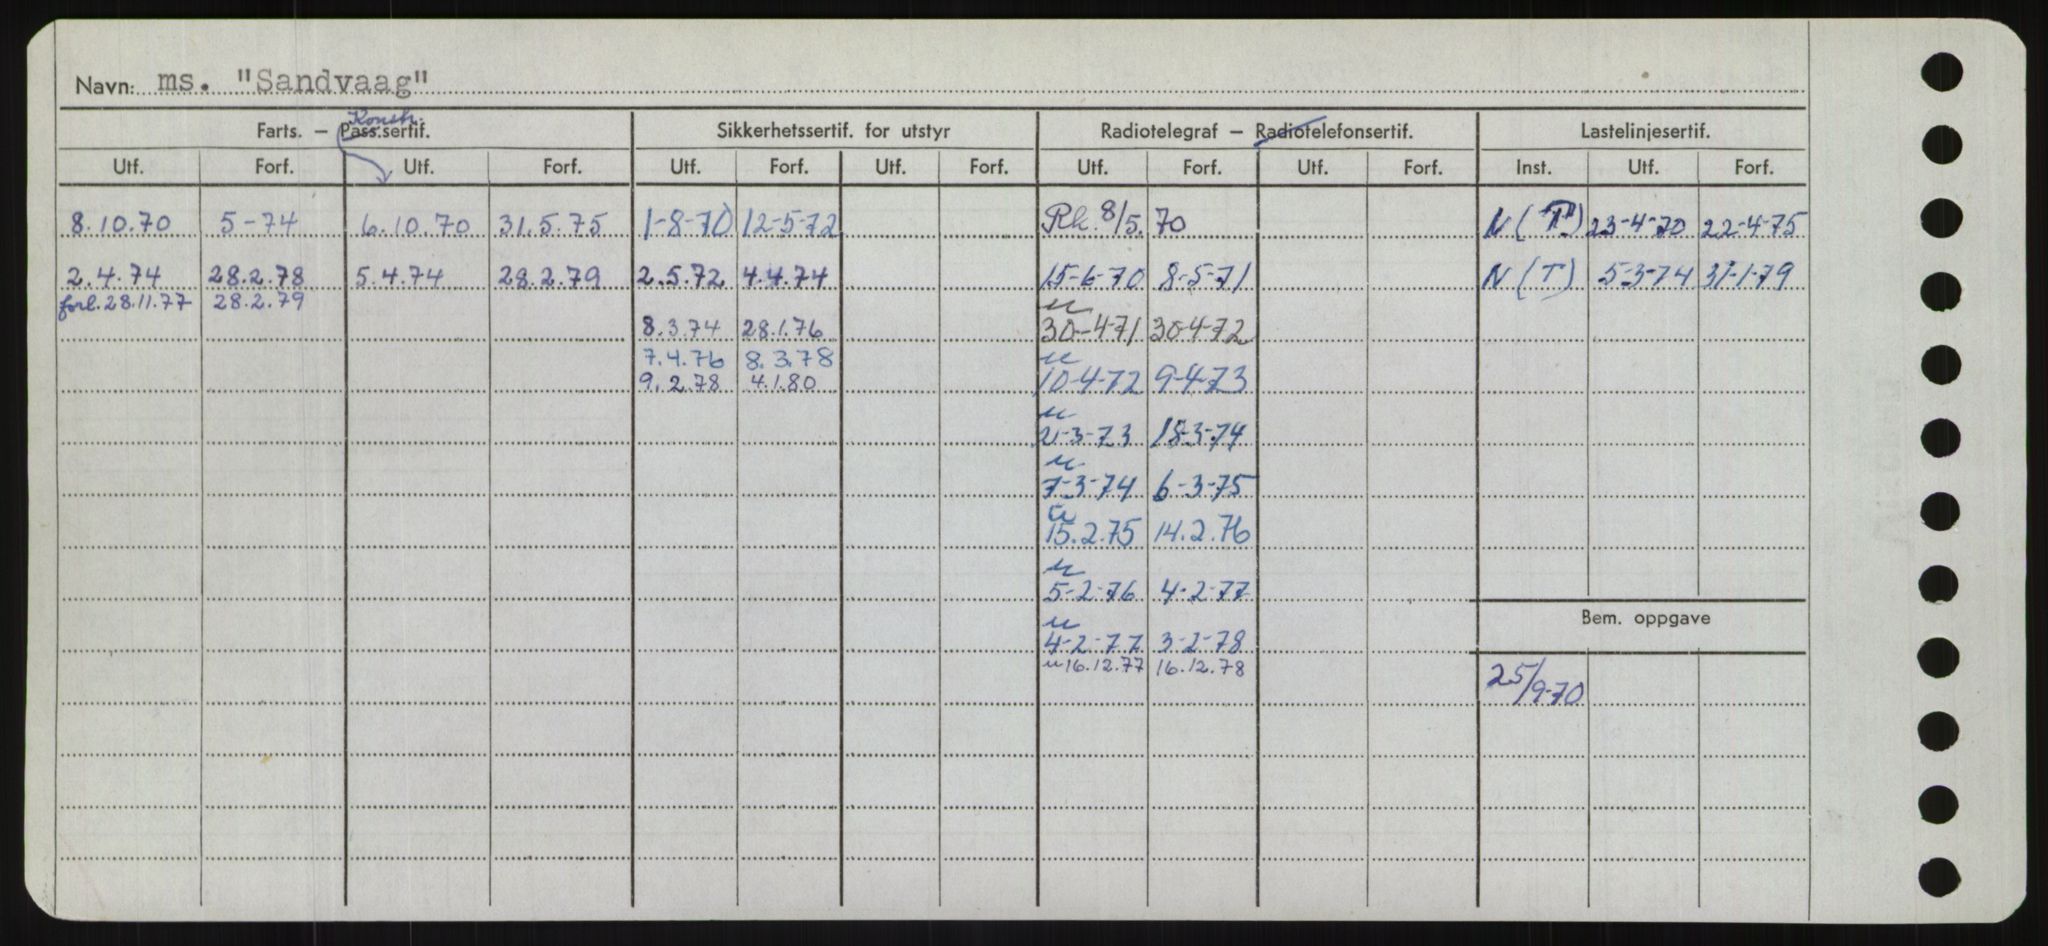 Navn: ms. "Sandvaag"
Konstr.
Farts. – Pass.sertif. Sikkerhetssertif. for utstyr Radiotelegraf – Radiotelefonsertif. Lastelinjesertif.
Utf. Forf. Utf. Forf. Utf. Forf. Utf. Forf. Utf. Forf. Utf. Forf. Inst. Utf. Forf.
8.10.70 5-74 6.10.70 31.5.75 1-8-70 12-5-72 Rk. 8/5.70 N (T) 23-4-70 22-4-75
2.4.74 28.2.78 5.4.74 28.2.79 2.5.72 4.4.74 15-6-70 8-5-71 N (T) 5-3-74 31-1-79
forl. 28.11.77 28.2.79
u
8.3.74 28.1.76 30-4-71 30-4-72
7.4.76 8.3.78 u
9.2.78 4.1.80 10-4-72 9-4-73
u
-3-73 18-3-74
u
7-3-74 6-3-75
u
15.2.75 14.2.76
u
5-2-76 4-2-77
Bem. oppgave
u
4-2-77 3-2-78
u 16.12.77 16.12.78
25/9-70